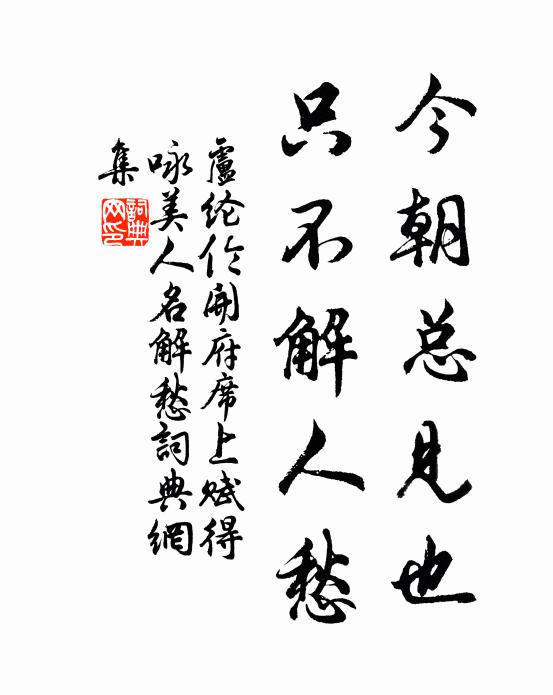 今朝总见也
只不解人愁
盧纶伦開府席上赋得
咏美人名解愁詞典網
集
詞典网印